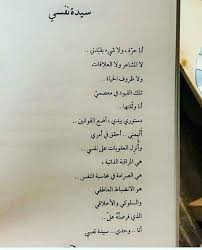 سيدة نفسي
أنا حرّة، ولا شيء يقيّدني..
لا المشاعر ولا العلاقات
ولا ظروف الحياة..
تلك القيود في معصميّ
أنا وثّقتها..
دستوري بيدي، أضع القوانين..
أُلهمني.. أحقق في أمري
وأُنزل العقوبات على نفسي..
هي المراقبة الذاتية،
هي الصرامة في محاسبة النفس..
هو الانضباط العاطفي
والسلوكي والأخلاقي
الذي فرضتُهُ عليّ..
أنا.. وحدي.. سيدة نفسي